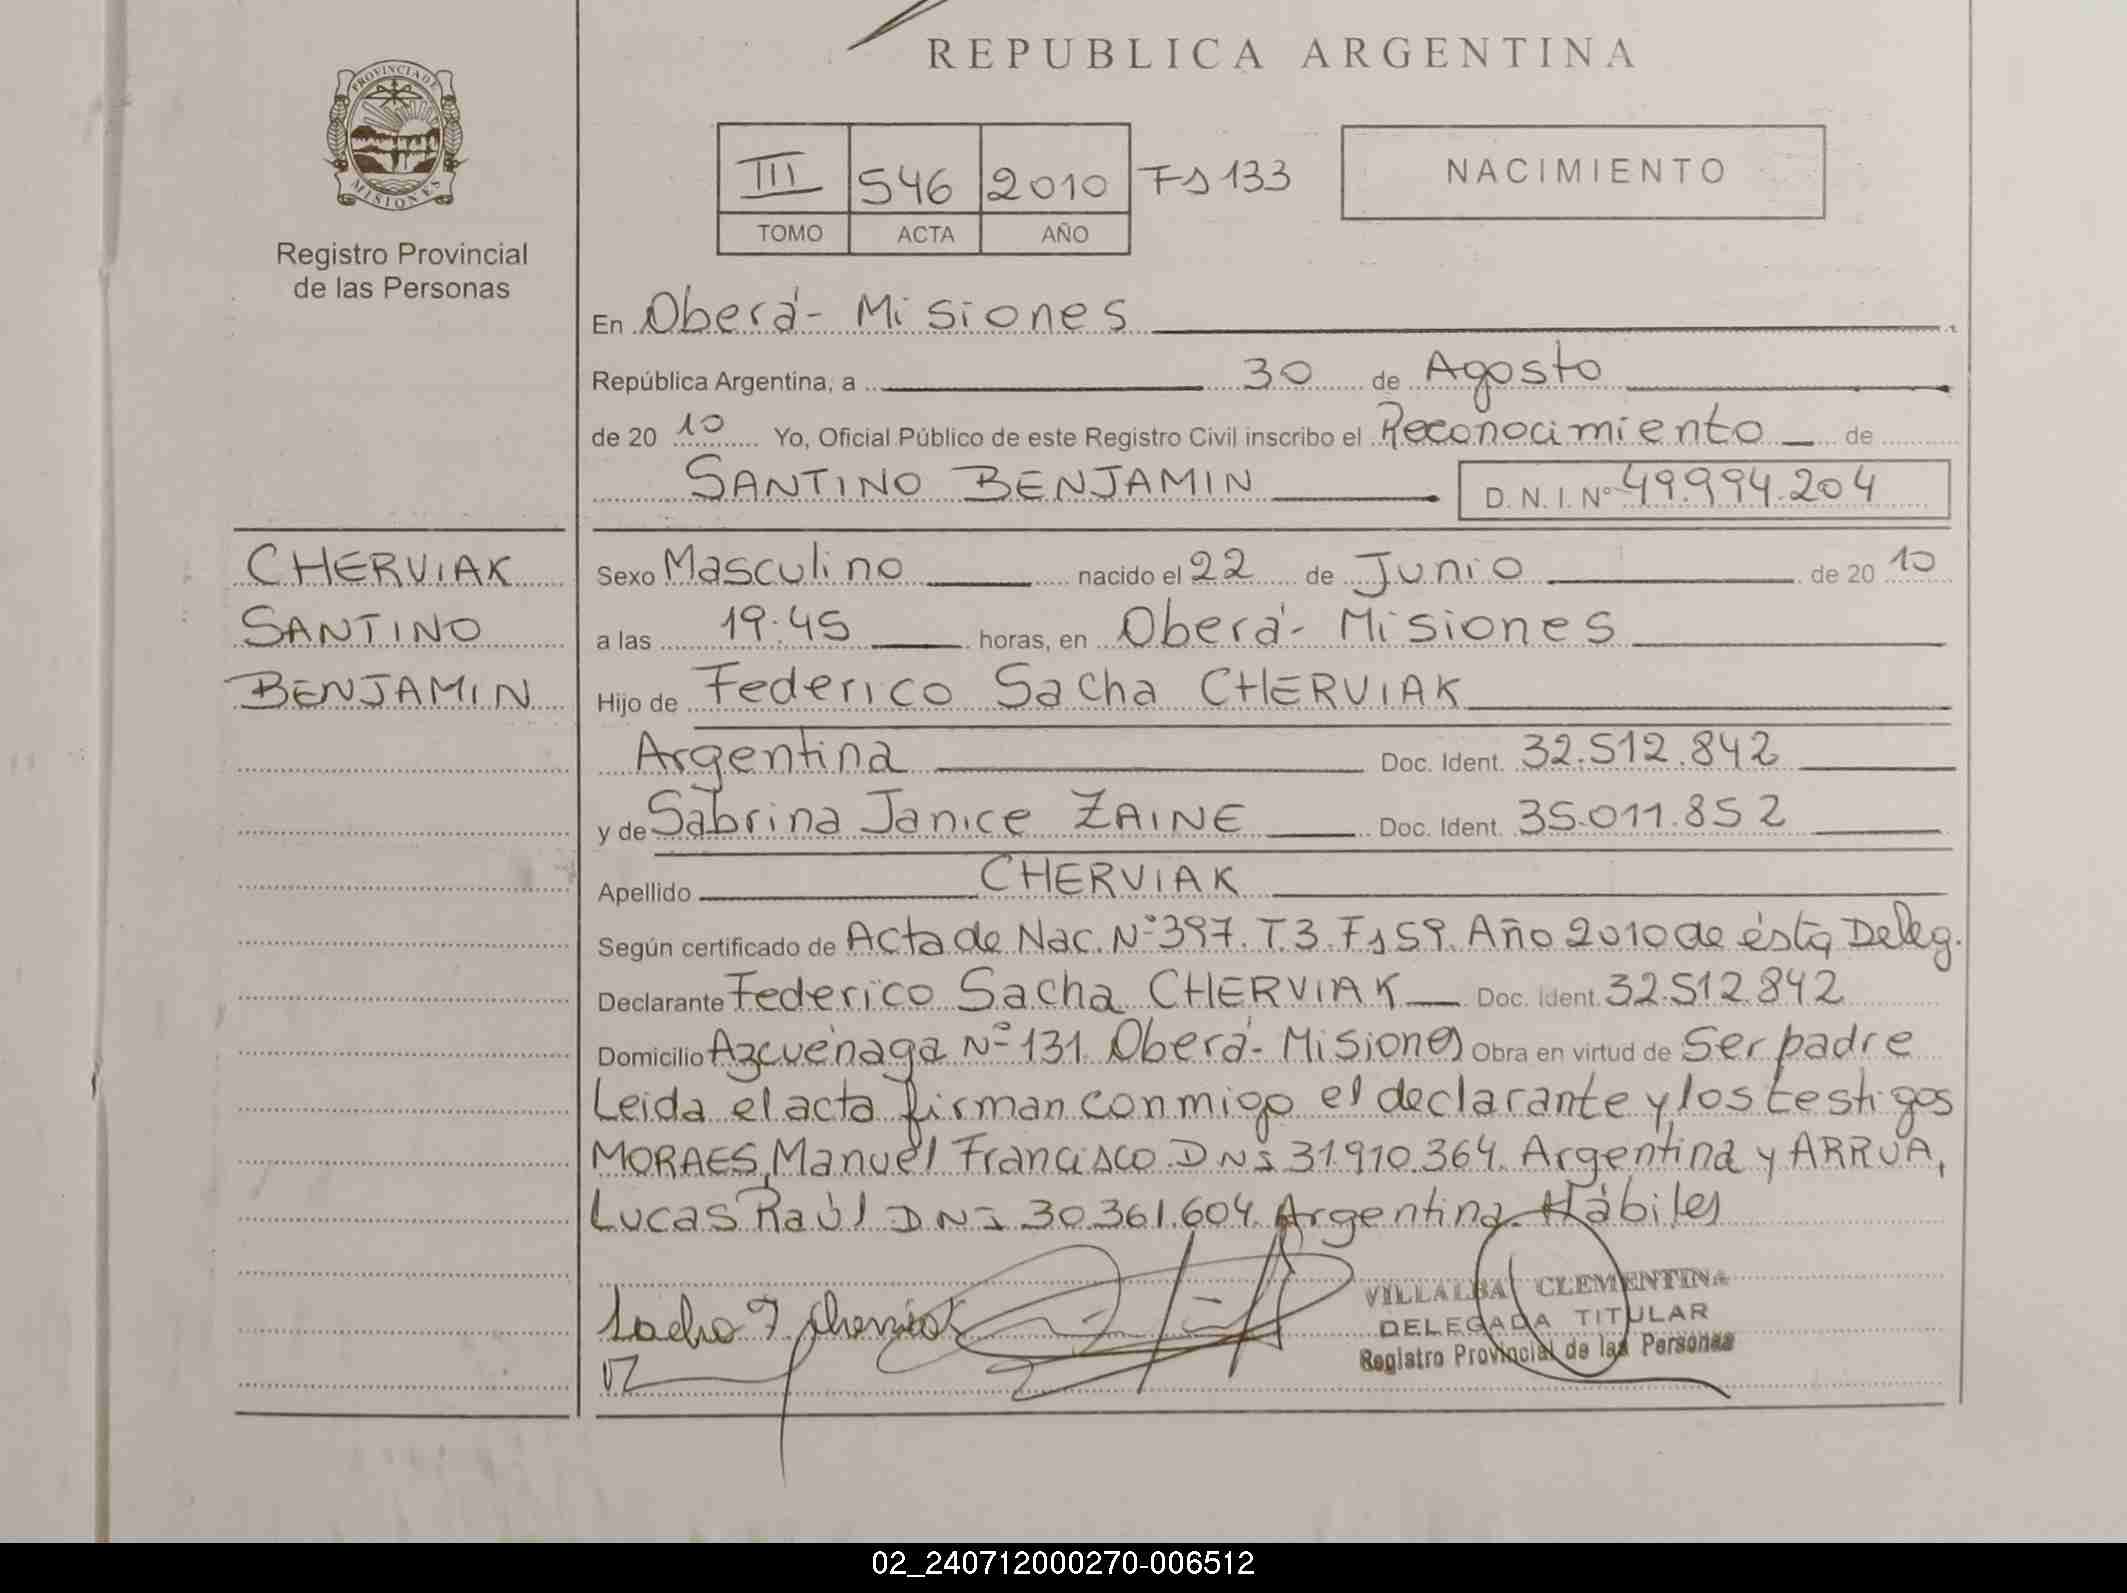 REPUBLICA ARGENTINA
PROVINCIA DE
MISIONES
Registro Provincial
de las Personas
III 546 2010 Fs 133
TOMO ACTA AÑO
NACIMIENTO
En Oberá - Misiones
República Argentina, a 30 de Agosto
de 20 10 Yo, Oficial Público de este Registro Civil inscribo el Reconocimiento de
SANTINO BENJAMIN D. N. I. Nº 49.994.204
CHERVIAK
SANTINO
BENJAMIN
Sexo Masculino nacido el 22 de Junio de 20 10
a las 19:45 horas, en Oberá - Misiones
Hijo de Federico Sacha CHERVIAK
Argentina Doc. Ident. 32.512.842
y de Sabrina Janice ZAINE Doc. Ident. 35.011.852
Apellido CHERVIAK
Según certificado de Acta de Nac. Nº 397. T.3. Fs 59. Año 2010 de ésta Deleg.
Declarante Federico Sacha CHERVIAK Doc. Ident. 32.512.842
Domicilio Azcuénaga Nº 131 Oberá - Misiones Obra en virtud de Ser padre
Leida el acta firman conmigo el declarante y los testigos
MORAES, Manuel Francisco DNI 31.910.364. Argentina y ARRUA,
Lucas Raúl DNI 30.361.604. Argentina. Hábiles
VILLALBA CLEMENTINA
DELEGADA TITULAR
Registro Provincial de las Personas
02_240712000270-006512